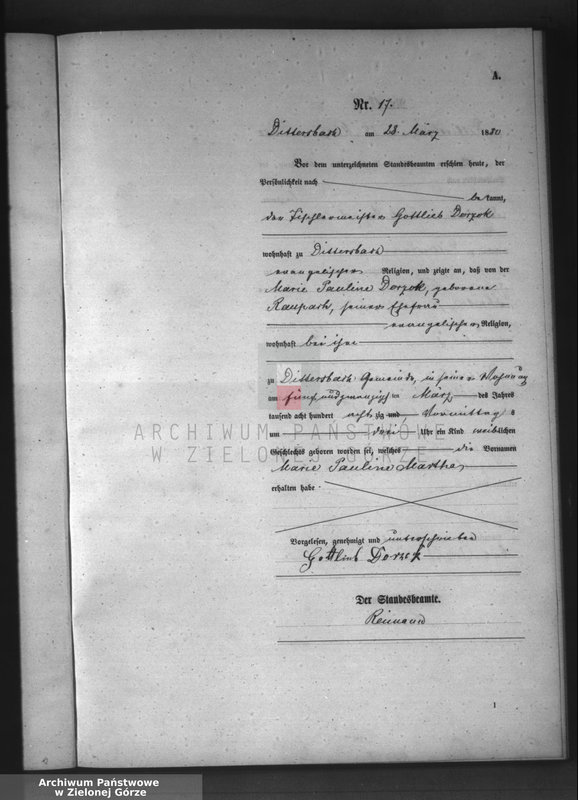 A.
Nr. 17.
Dittersbach am 28. März 1880
Vor dem unterzeichneten Standesbeamten erschien heute, der
Persönlichkeit nach
bekannt,
der Tischlermeister Gottlieb Dorzok
wohnhaft zu Dittersbach
evangelischer Religion, und zeigte an, daß von der
Marie Pauline Dorzok, geborene
seiner Ehefrau
evangelischer Religion,
wohnhaft bei ihm
zu Dittersbach Gemeinde, in seiner Wohnung
am fünfundzwanzigsten März des Jahres
tausend acht hundert achtzig und Vormittags
um drei Uhr ein Kind weiblichen
Geschlechts geboren worden sei, welches die Vornamen
Marie Pauline Martha
erhalten habe.
Vorgelesen, genehmigt und unterschrieben
Gottlieb Dorzok
Der Standesbeamte.
1
ARCHIWUM PAŃSTWOWE
W ZIELONEJ GÓRZE
Archiwum Państwowe
w Zielonej Górze